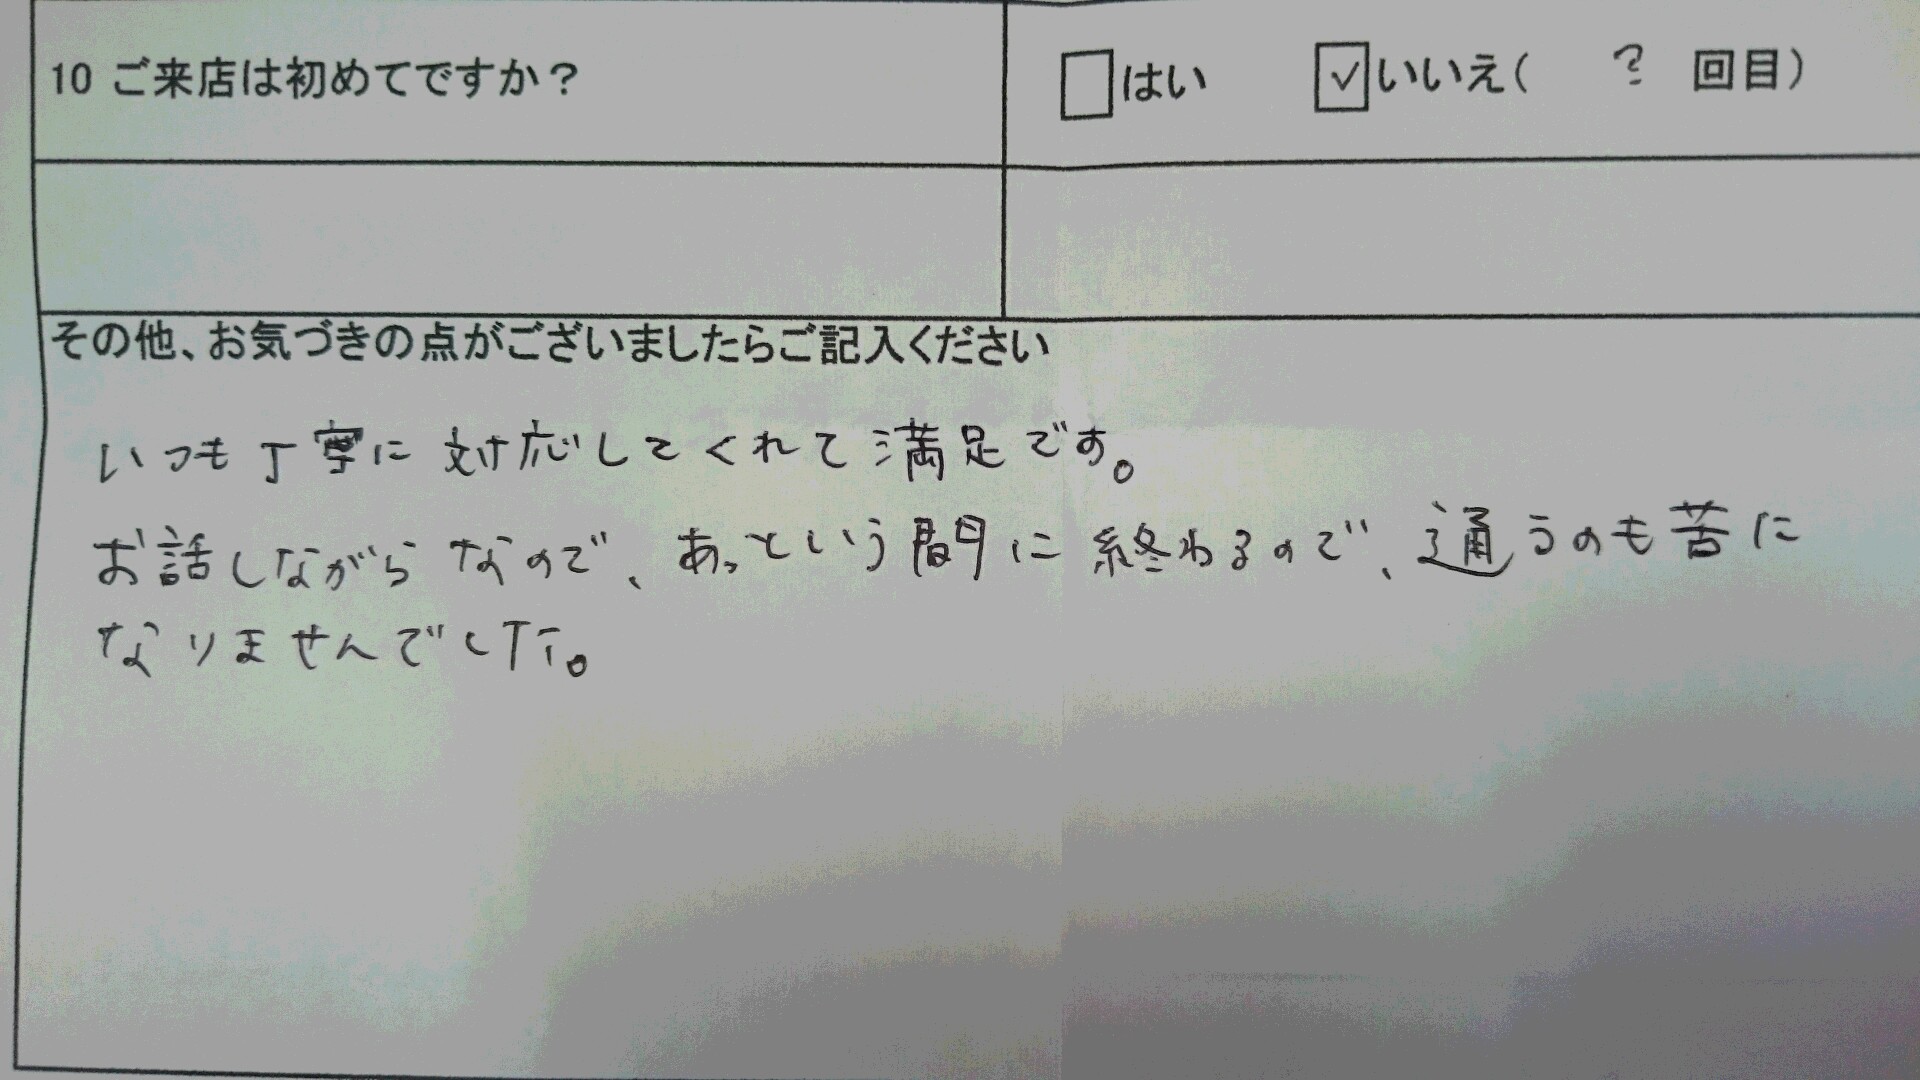 10 ご来店は初めてですか？
はい ✓いいえ( ? 回目)
その他、お気づきの点がございましたらご記入ください
いつも丁寧に対応してくれて満足です。
お話しながらなので、あっという間に終わるので、通うのも苦に
なりませんでした。